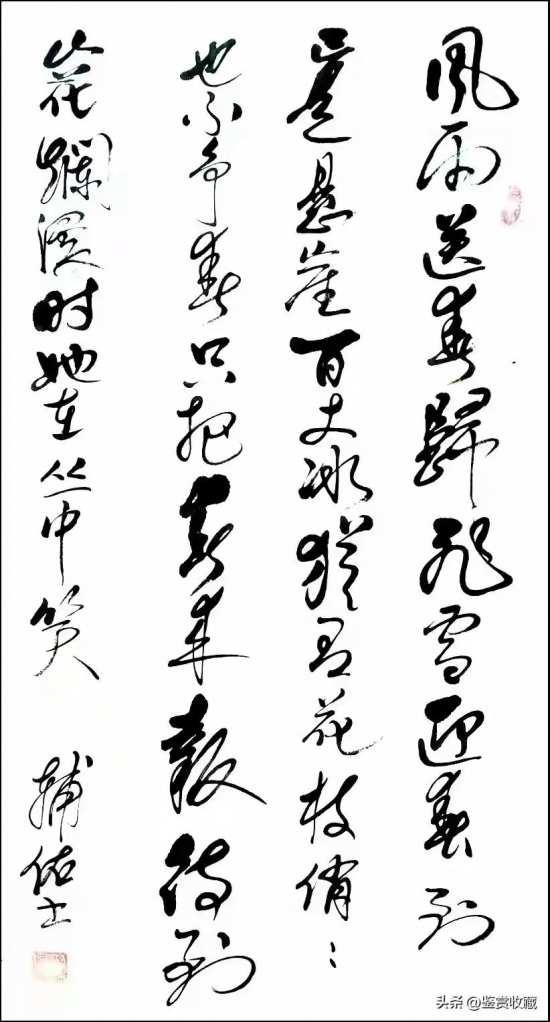 風雨送春歸飛雪迎春到
已是悬崖百丈冰犹有花枝俏〻
也不争春只把春来報待到
山花爛漫时她在丛中笑
輔佑士
头条 @鉴赏收藏